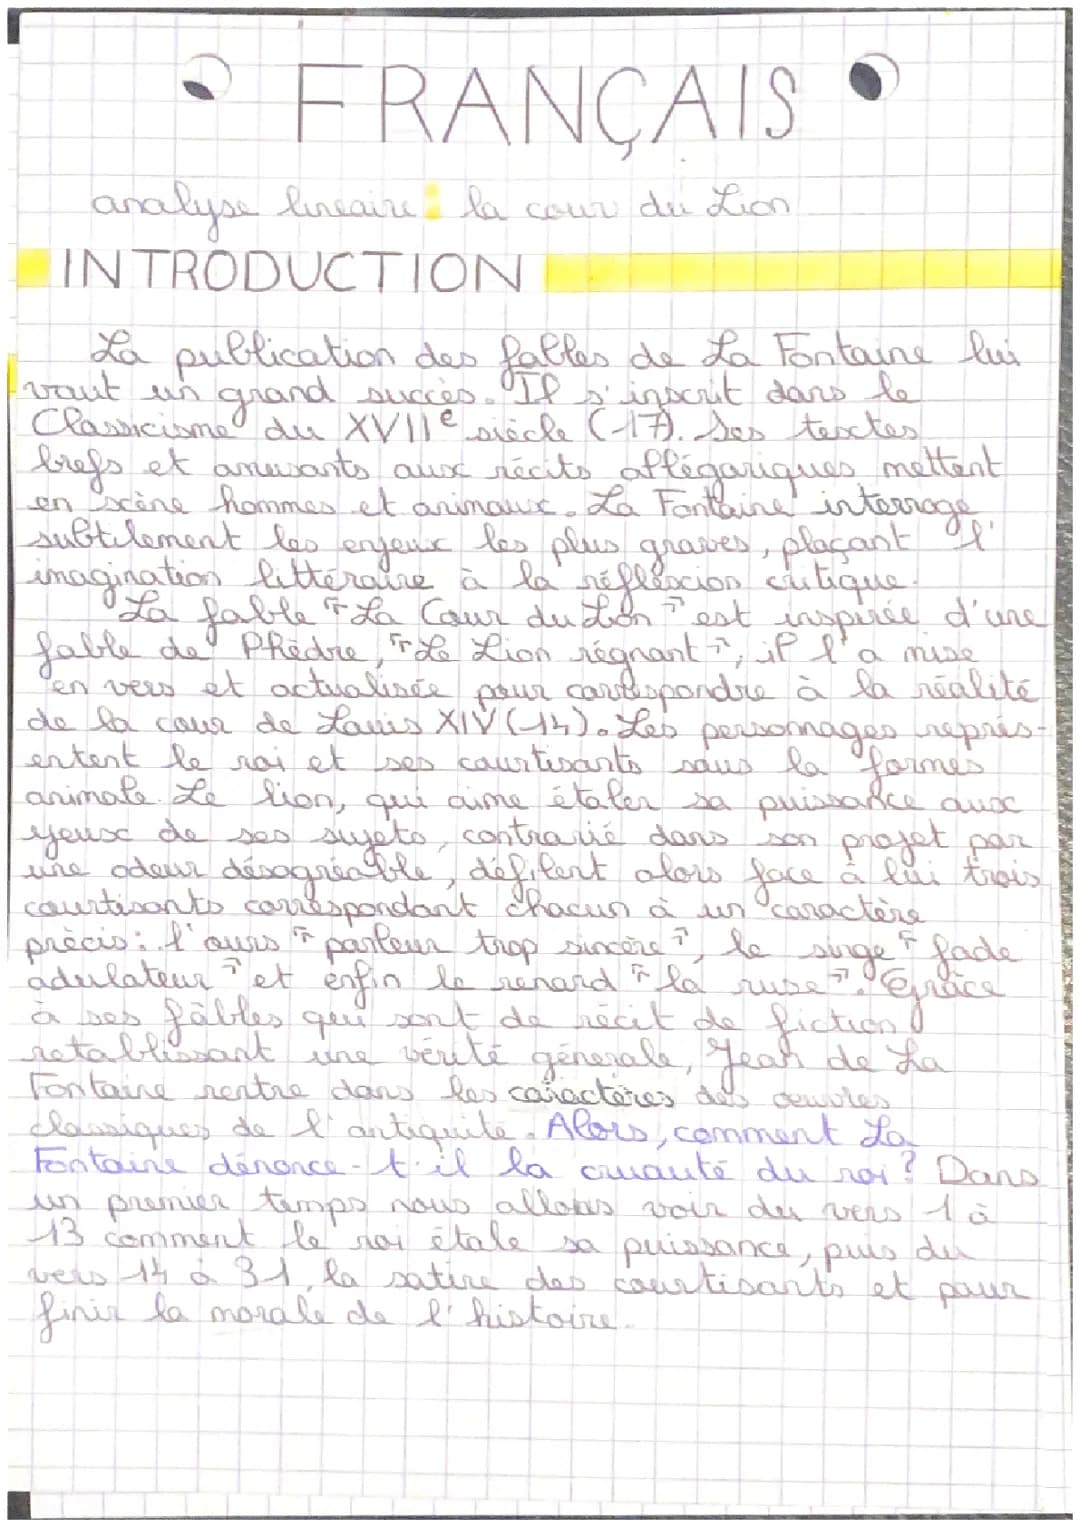 FRANÇAIS
analyse linéaire : la cour du Lion
INTRODUCTION
La publication des fables de La Fontaine lui
vaut un grand succès. Il s'inscrit dans le
Classicisme du XVIIe siècle (17). Ses textes
brefs et amusants aux récits allégoriques mettent
en scène hommes et animaux. La Fontaine interroge
subtilement les enjeux les plus graves, plaçant l'
imagination littéraire à la réflexion critique.
La fable "La Cour du Lion" est inspirée d'une
fable de Phèdre, "Le Lion régnant", il l'a mise
en vers et actualisée pour correspondre à la réalité
de la cour de Louis XIV (14). Les personnages représ-
entent le roi et ses courtisants sous la formes
animale. Le lion, qui aime étaler sa puissance aux
yeux de ses sujets, contrarié dans son projet par
une odeur désagréable, défilent alors face à lui trois
courtisants correspondant chacun à un caractère
précis : l'ours "parleur trop sincère", le singe "fade
adulateur" et enfin le renard "la ruse". Grâce
à ses fâbles qui sont de récit de fiction
retablissant une vérité générale, Jean de La
Fontaine rentre dans les caractères des oeuvres
classiques de l'antiquité. Alors, comment La
Fontaine dénonce-t-il la cruauté du roi ? Dans
un premier temps nous allons voir du vers 1 à
13 comment le roi étale sa puissance, puis du
vers 14 à 31, la satire des courtisants et pour
finir la morale de l'histoire.